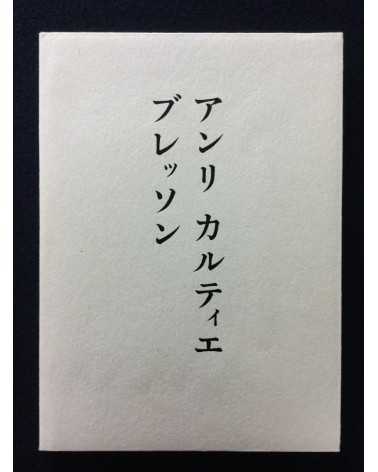 アンリ カルティエ
ブレッソン